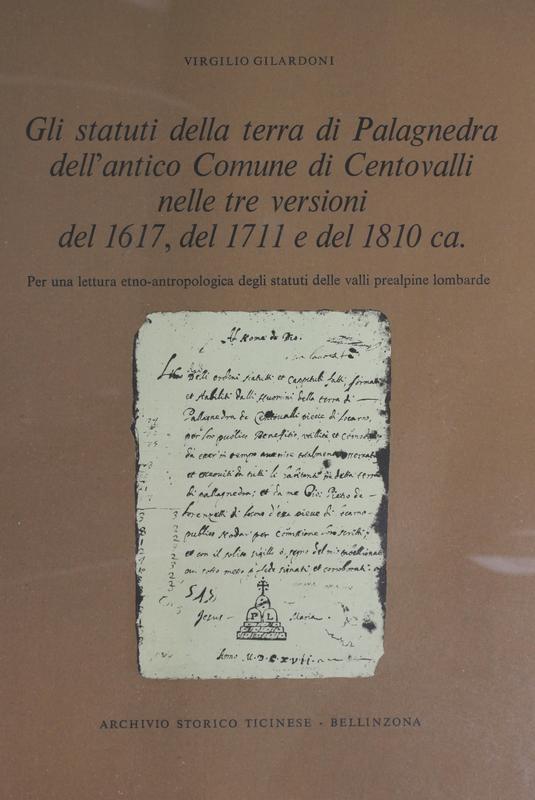 VIRGILIO GILARDONI
Gli statuti della terra di Palagnedra
dell'antico Comune di Centovalli
nelle tre versioni
del 1617, del 1711 e del 1810 ca.
Per una lettura etno-antropologica degli statuti delle valli prealpine lombarde
Al Nome de Dio.
delli ordini statutti et Cappituli fatti formati
et stabiliti dalli Huomini della terra di
Pallanedra de Centovalli pieve di Locarno,
per loro publico Beneffitio, uttilità et
da esser in tempo
et essequiti da tutti li di detta terra
di pallagnedra; et da me Pietro de
di Locno d'essa pieve di Locarno
publico Nodaro per Comissione
et con il solito sigillo o segno del
Jesus P L Maria.
Anno M.D.C.XVII.
ARCHIVIO STORICO TICINESE - BELLINZONA